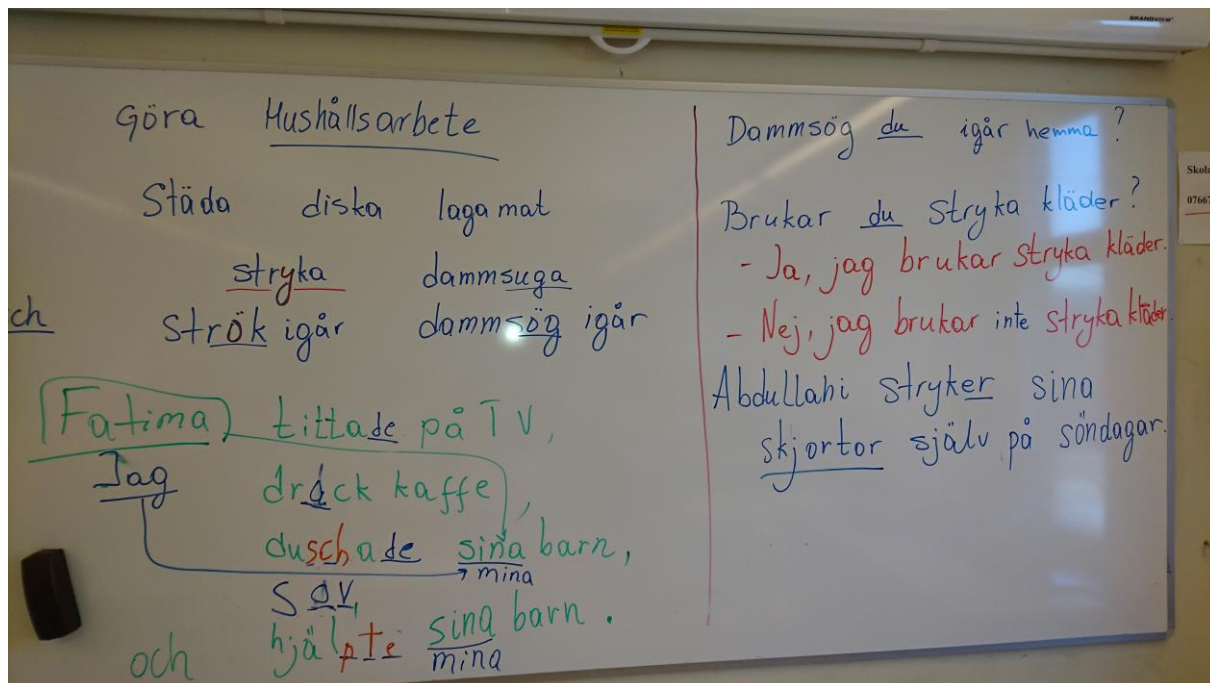 GRANDVIEW
Göra Hushållsarbete
Städa diska laga mat
stryka dammsuga
ch
strök igår dammsög igår
Fatima tittade på TV,
Jag drack kaffe,
duschade sina barn,
mina
sov,
och hjälpte sina barn.
mina
Dammsög du igår hemma?
Brukar du stryka kläder?
- Ja, jag brukar stryka kläder.
- Nej, jag brukar inte stryka kläder.
Abdullahi stryker sina
skjortor själv på söndagar.
Skol
0766